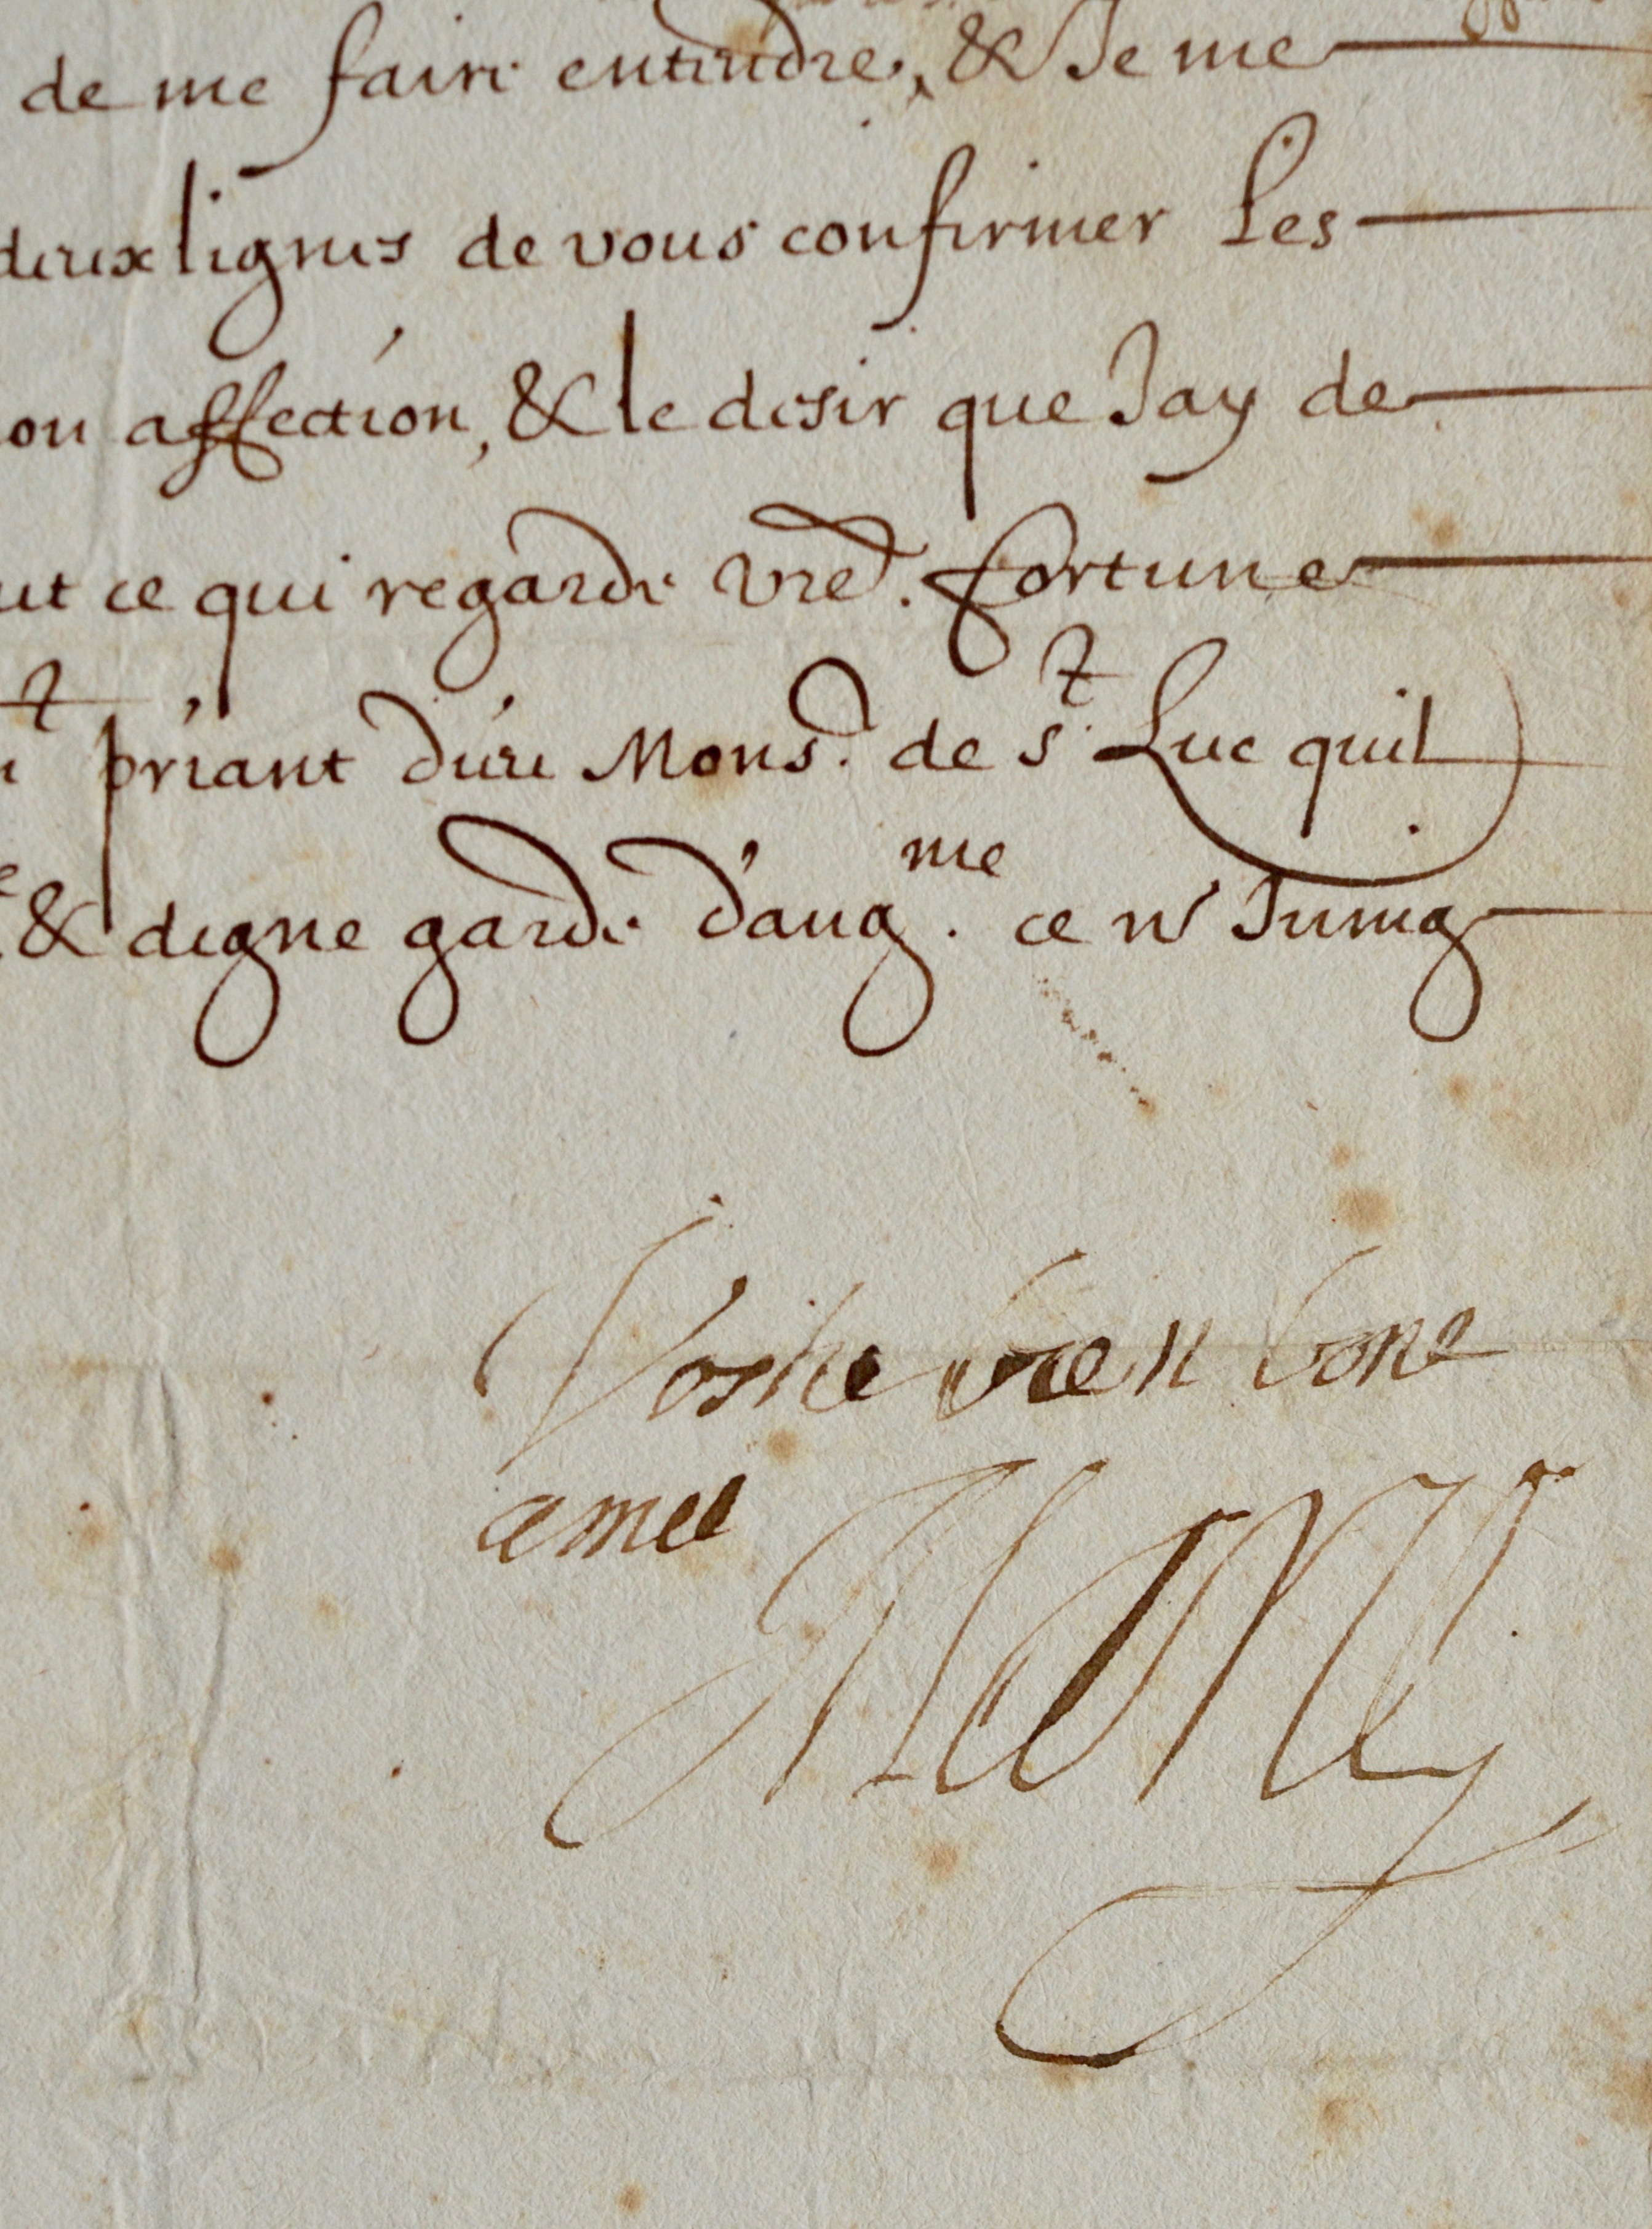 de me faire entendre, & Je me
deux lignes de vous confirmer Les
on affection, & le desir que Jay de
ut ce qui regarde vre. fortune
priant dieu Mons.r de St Luc quil
& digne garde d'aug.me ce
Vostre bien bone
amie